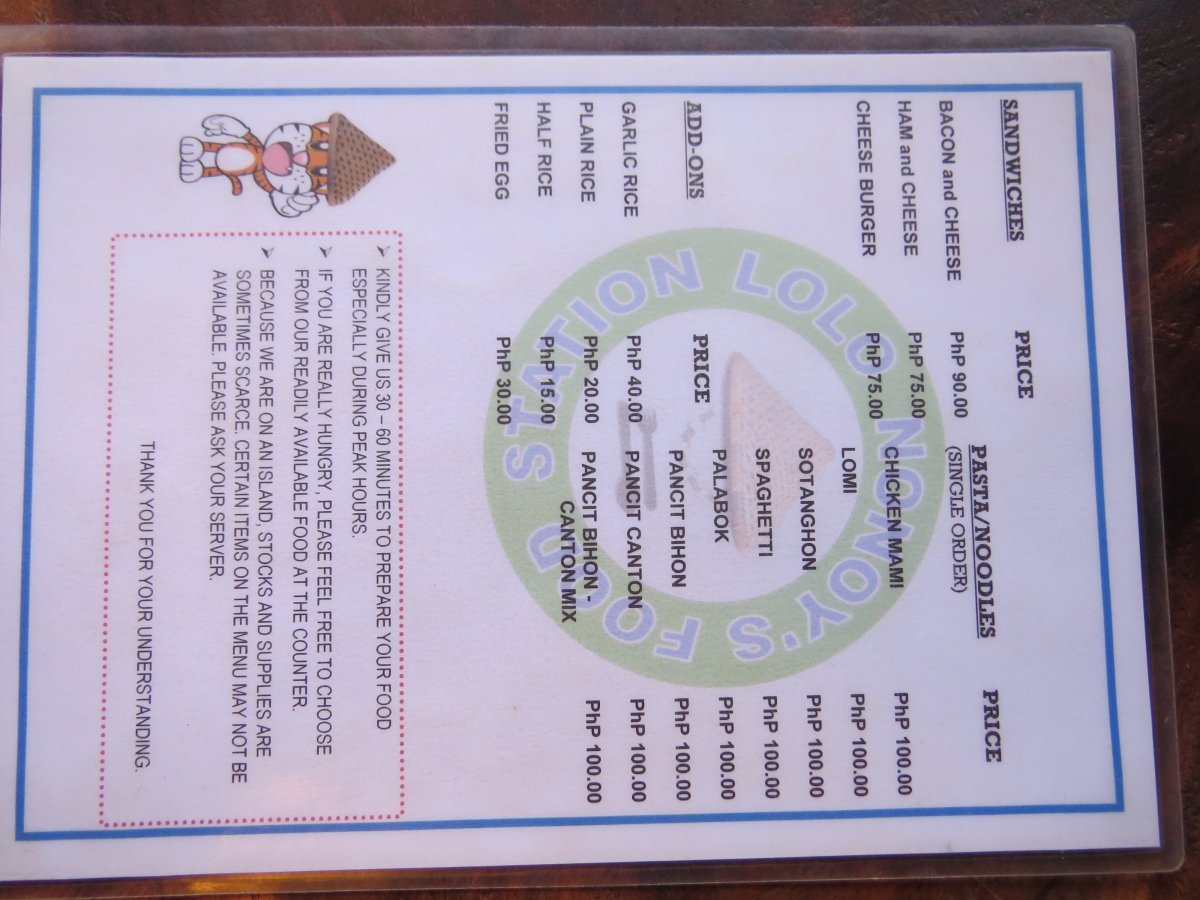 SANDWICHES PRICE
BACON and CHEESE PhP 90.00
HAM and CHEESE PhP 75.00
CHEESE BURGER PhP 75.00
ADD-ONS PRICE
GARLIC RICE PhP 40.00
PLAIN RICE PhP 20.00
HALF RICE PhP 15.00
FRIED EGG PhP 30.00
PASTA/NOODLES PRICE
(SINGLE ORDER)
CHICKEN MAMI PhP 100.00
LOMI PhP 100.00
SOTANGHON PhP 100.00
SPAGHETTI PhP 100.00
PALABOK PhP 100.00
PANCIT BIHON PhP 100.00
PANCIT CANTON PhP 100.00
PANCIT BIHON - PhP 100.00
CANTON MIX
LOLO NONOY'S FOOD STATION
➢ KINDLY GIVE US 30 – 60 MINUTES TO PREPARE YOUR FOOD
ESPECIALLY DURING PEAK HOURS.
➢ IF YOU ARE REALLY HUNGRY, PLEASE FEEL FREE TO CHOOSE
FROM OUR READILY AVAILABLE FOOD AT THE COUNTER.
➢ BECAUSE WE ARE ON AN ISLAND, STOCKS AND SUPPLIES ARE
SOMETIMES SCARCE. CERTAIN ITEMS ON THE MENU MAY NOT BE
AVAILABLE. PLEASE ASK YOUR SERVER.
THANK YOU FOR YOUR UNDERSTANDING.